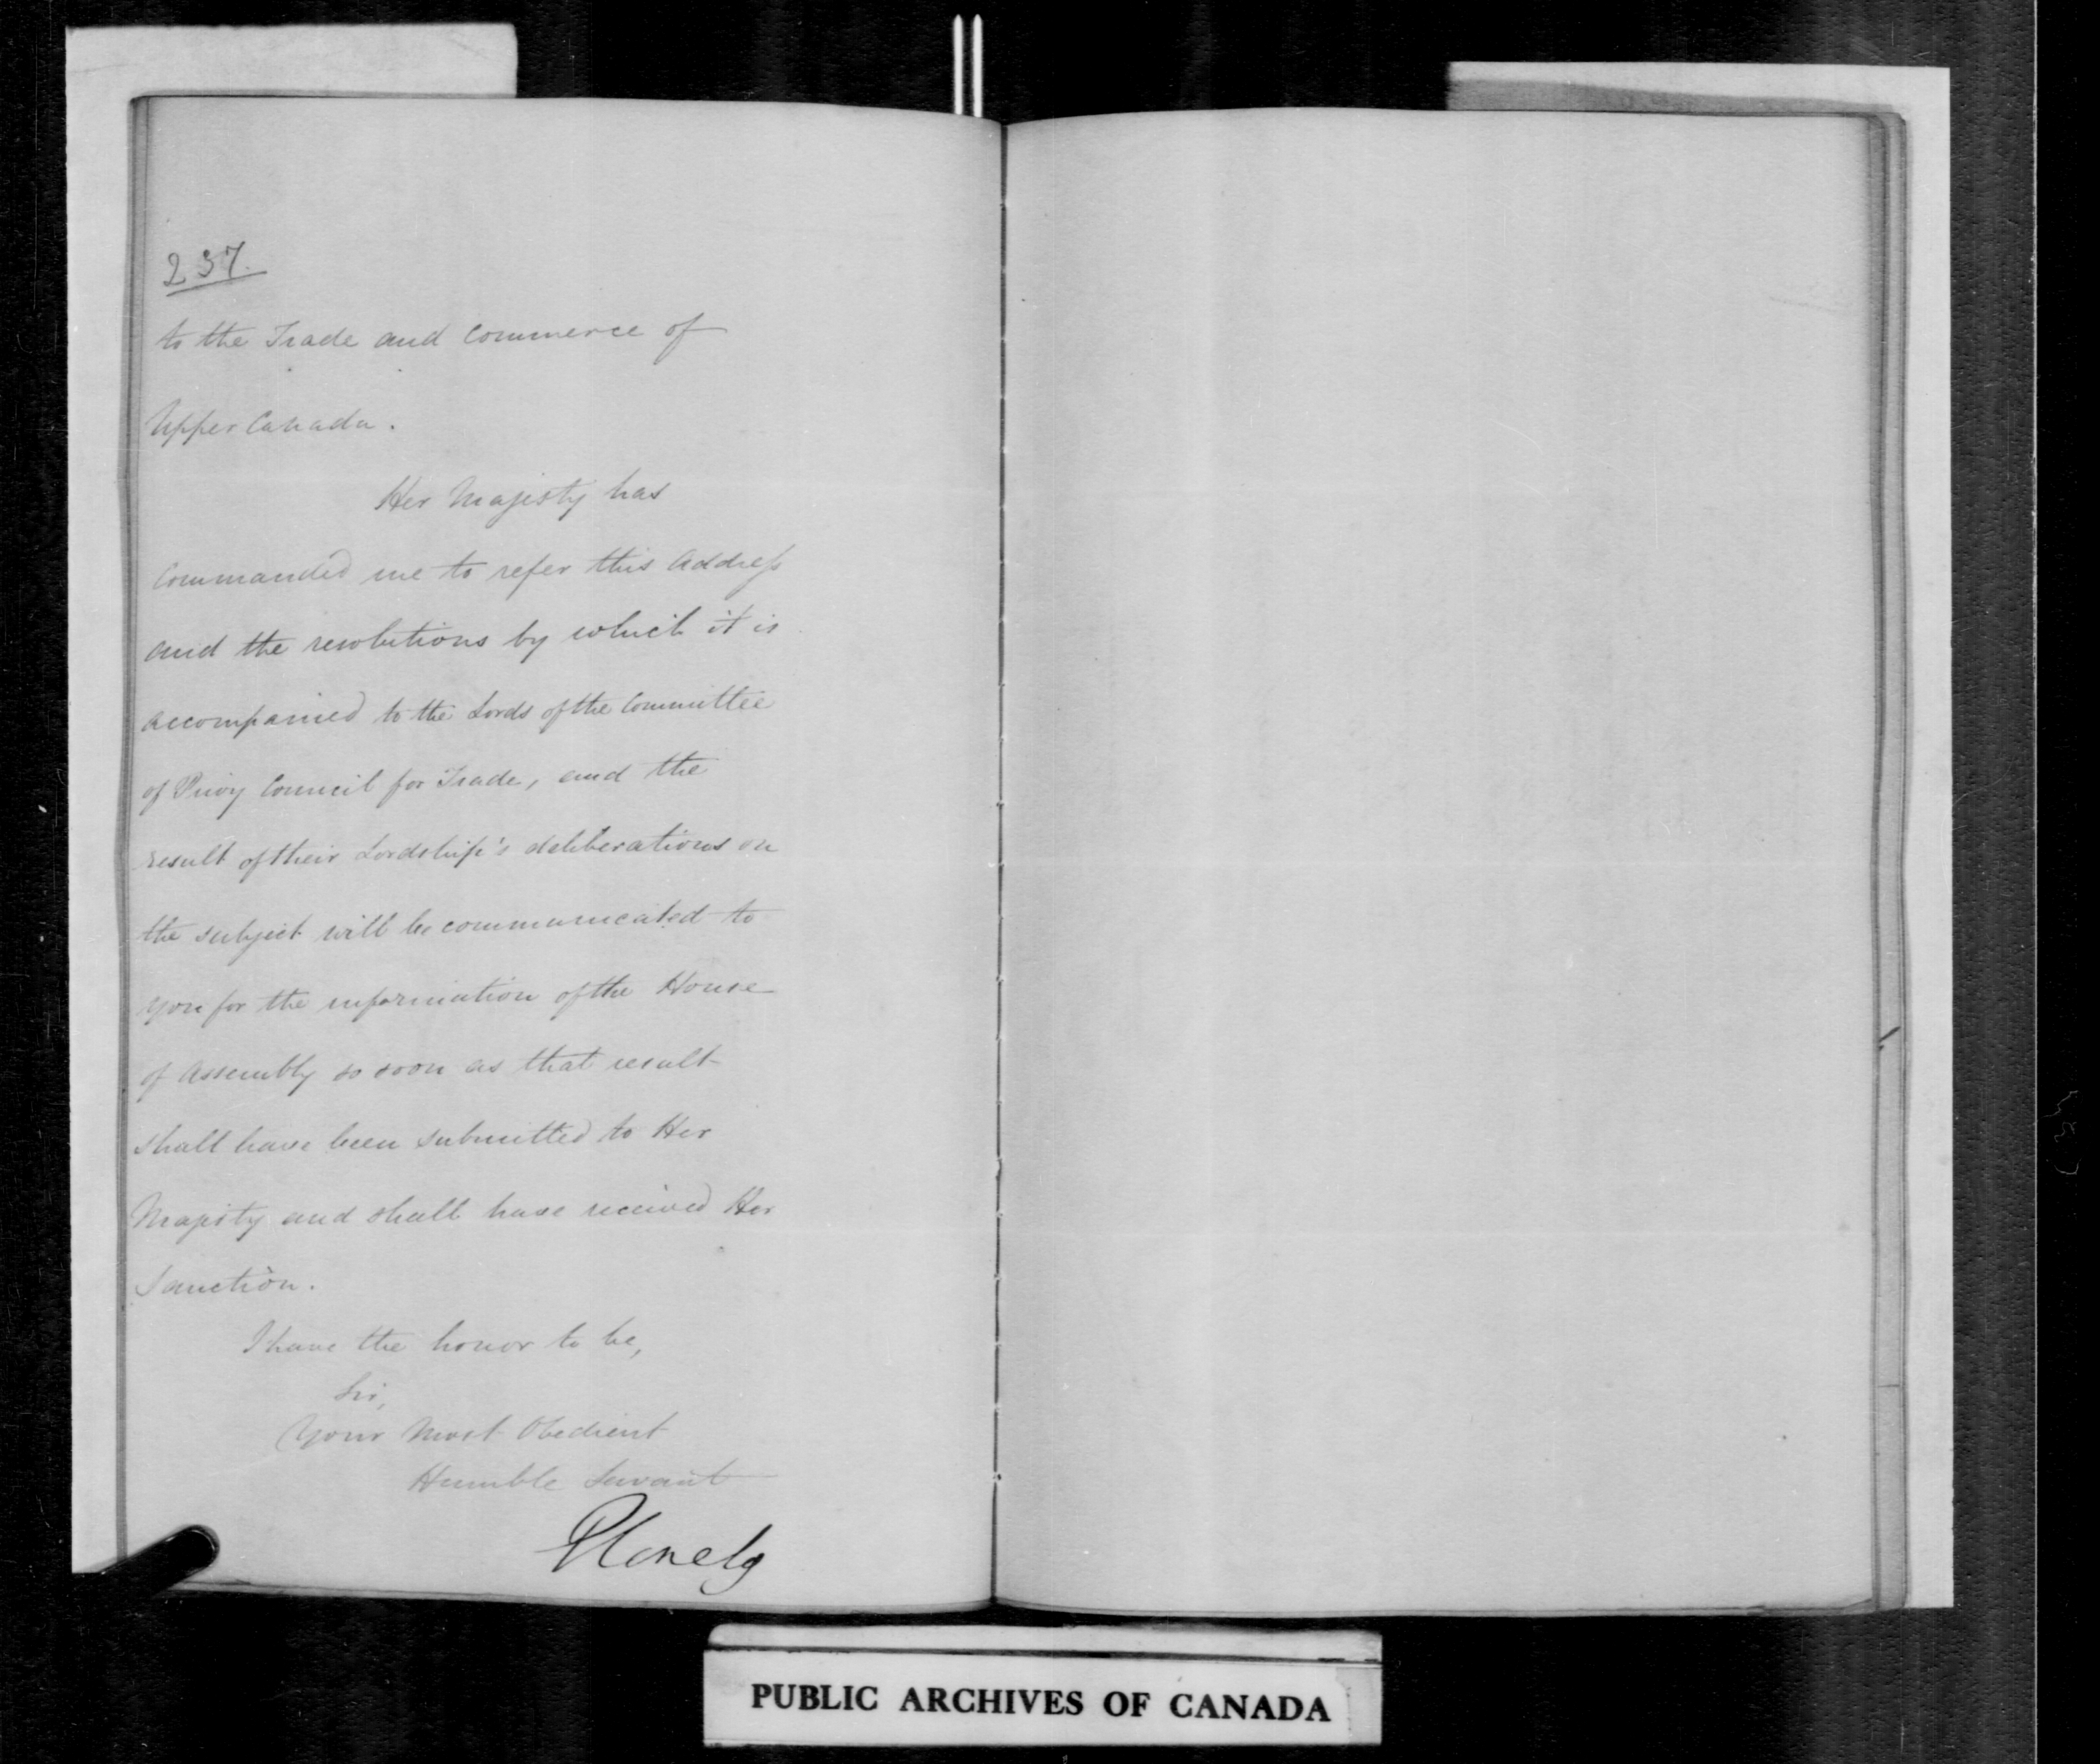 237.
to the Trade and Commerce of
Upper Canada.
Her Majesty has
Commanded me to refer this Address
and the resolutions by which it is
accompanied to the Lords of the Committee
of Privy Council for Trade, and the
result of their Lordship's deliberations on
the subject will be communicated to
you for the information of the House
of Assembly so soon as that result
shall have been submitted to Her
Majesty and shall have received Her
Sanction.
I have the honor to be,
Sir,
Your Most Obedient
Humble Servant
Glenelg
PUBLIC ARCHIVES OF CANADA